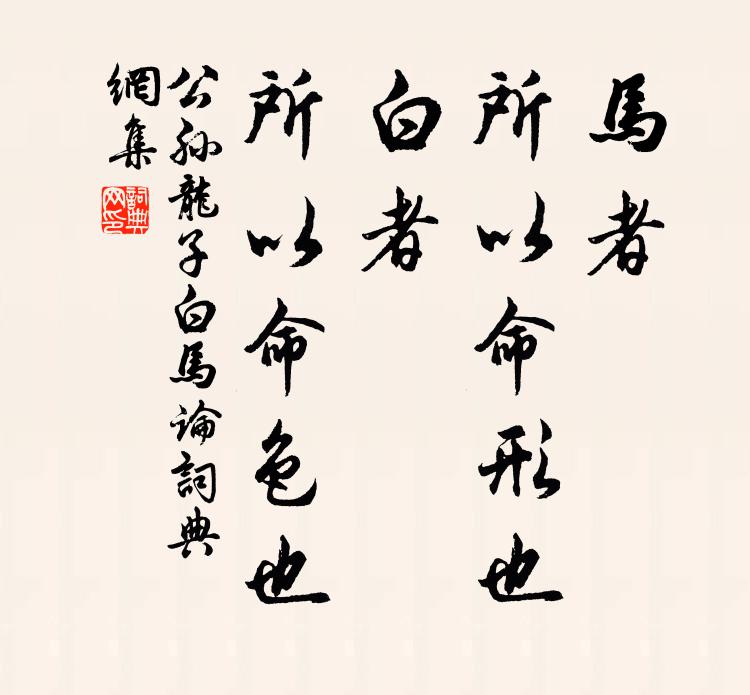 馬者
所以命形也
白者
所以命色也
公孫龍子白馬論詞典
網集
詞典
网印